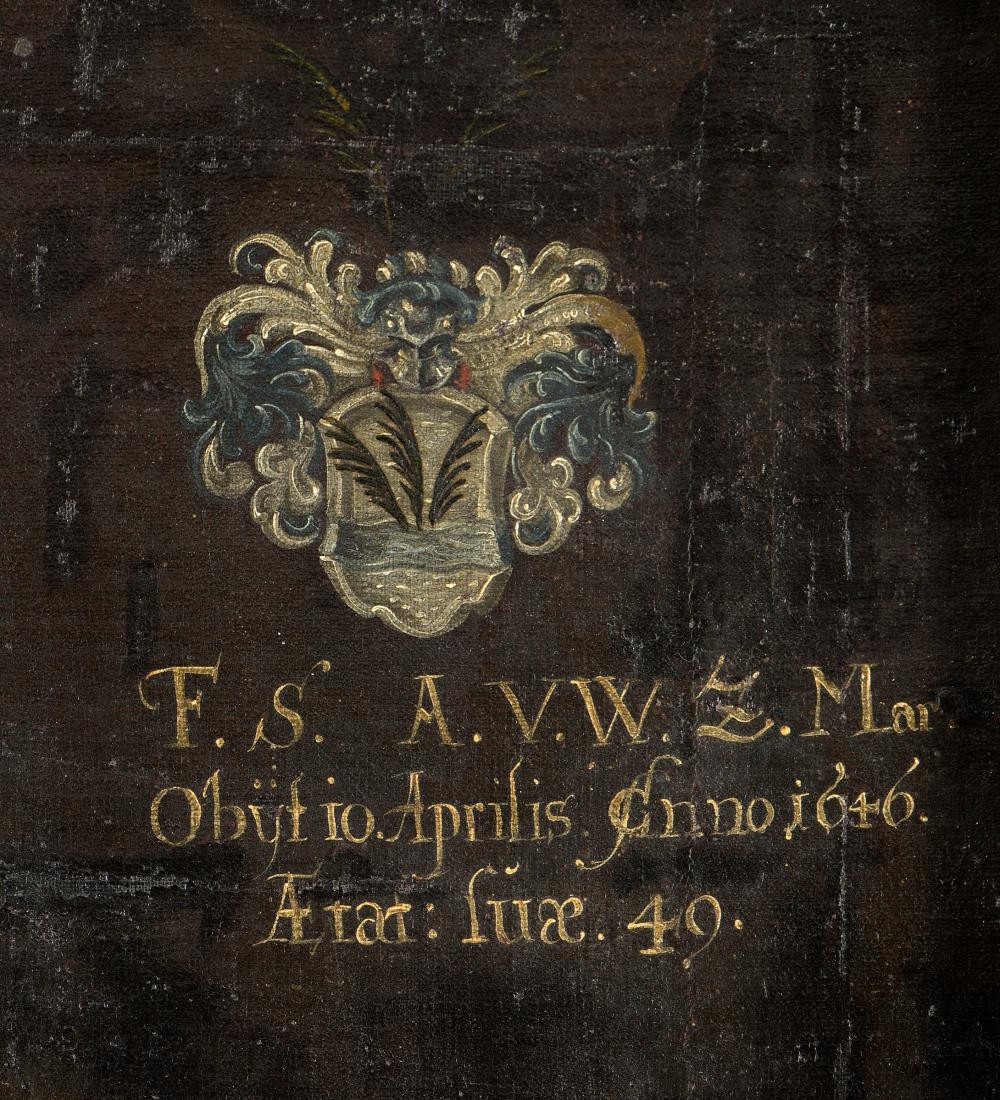 F. S. A. V. W. Z. Mar.
Obÿt 10. Aprilis. Anno 1646.
Ætat: suæ. 49.